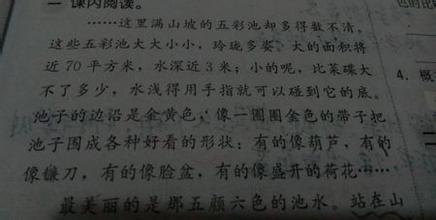 一 课内阅读。
……这里满山坡的五彩池却多得数不清。
这些五彩池大大小小,玲珑多姿,大的面积将
近70平方米,水深近3米;小的呢,比菜碟大
不了多少,水浅得用手指就可以碰到它的底。
池子的边沿是金黄色,像一圈圈金色的带子把
池子围成各种好看的形状:有的像葫芦,有的
像镰刀,有的像脸盆,有的像盛开的荷花……
最美丽的是那五颜六色的池水。站在山
4. 概